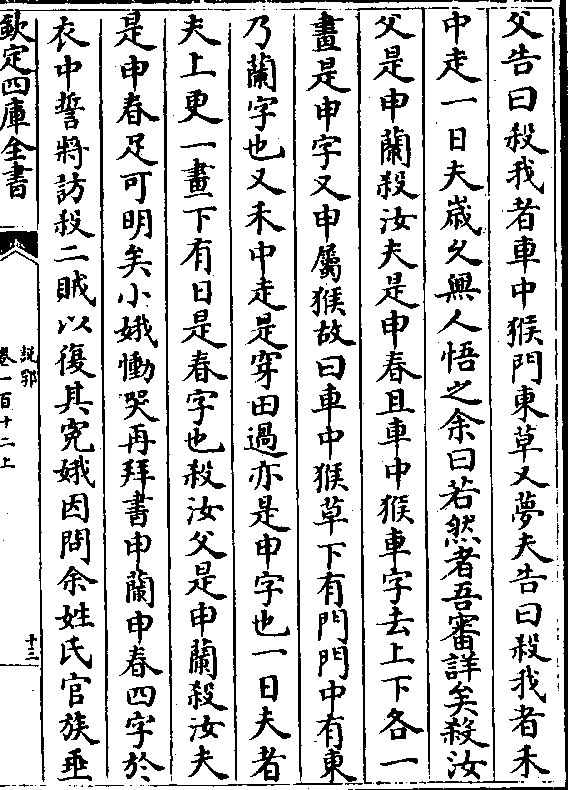 父告曰殺我者車中猴門東草又夢夫告曰殺我者禾
中走一日夫嵗久無人悟之余曰若然者吾審詳矣殺汝
父是申蘭殺汝夫是申春且車中猴車字去上下各一
畫是申字又申屬猴故曰車中猴草下有門門中有東
乃蘭字也又禾中走是穿田過亦是申字也一日夫者
夫上更一畫下有日是春字也殺汝父是申蘭殺汝夫
是申春足可明矣小娥慟哭再拜書申蘭申春四字於
衣中誓將訪殺二賊以復其寃娥因問余姓氏官族垂
欽定四庫全書
説郛
卷一百十二上
十三